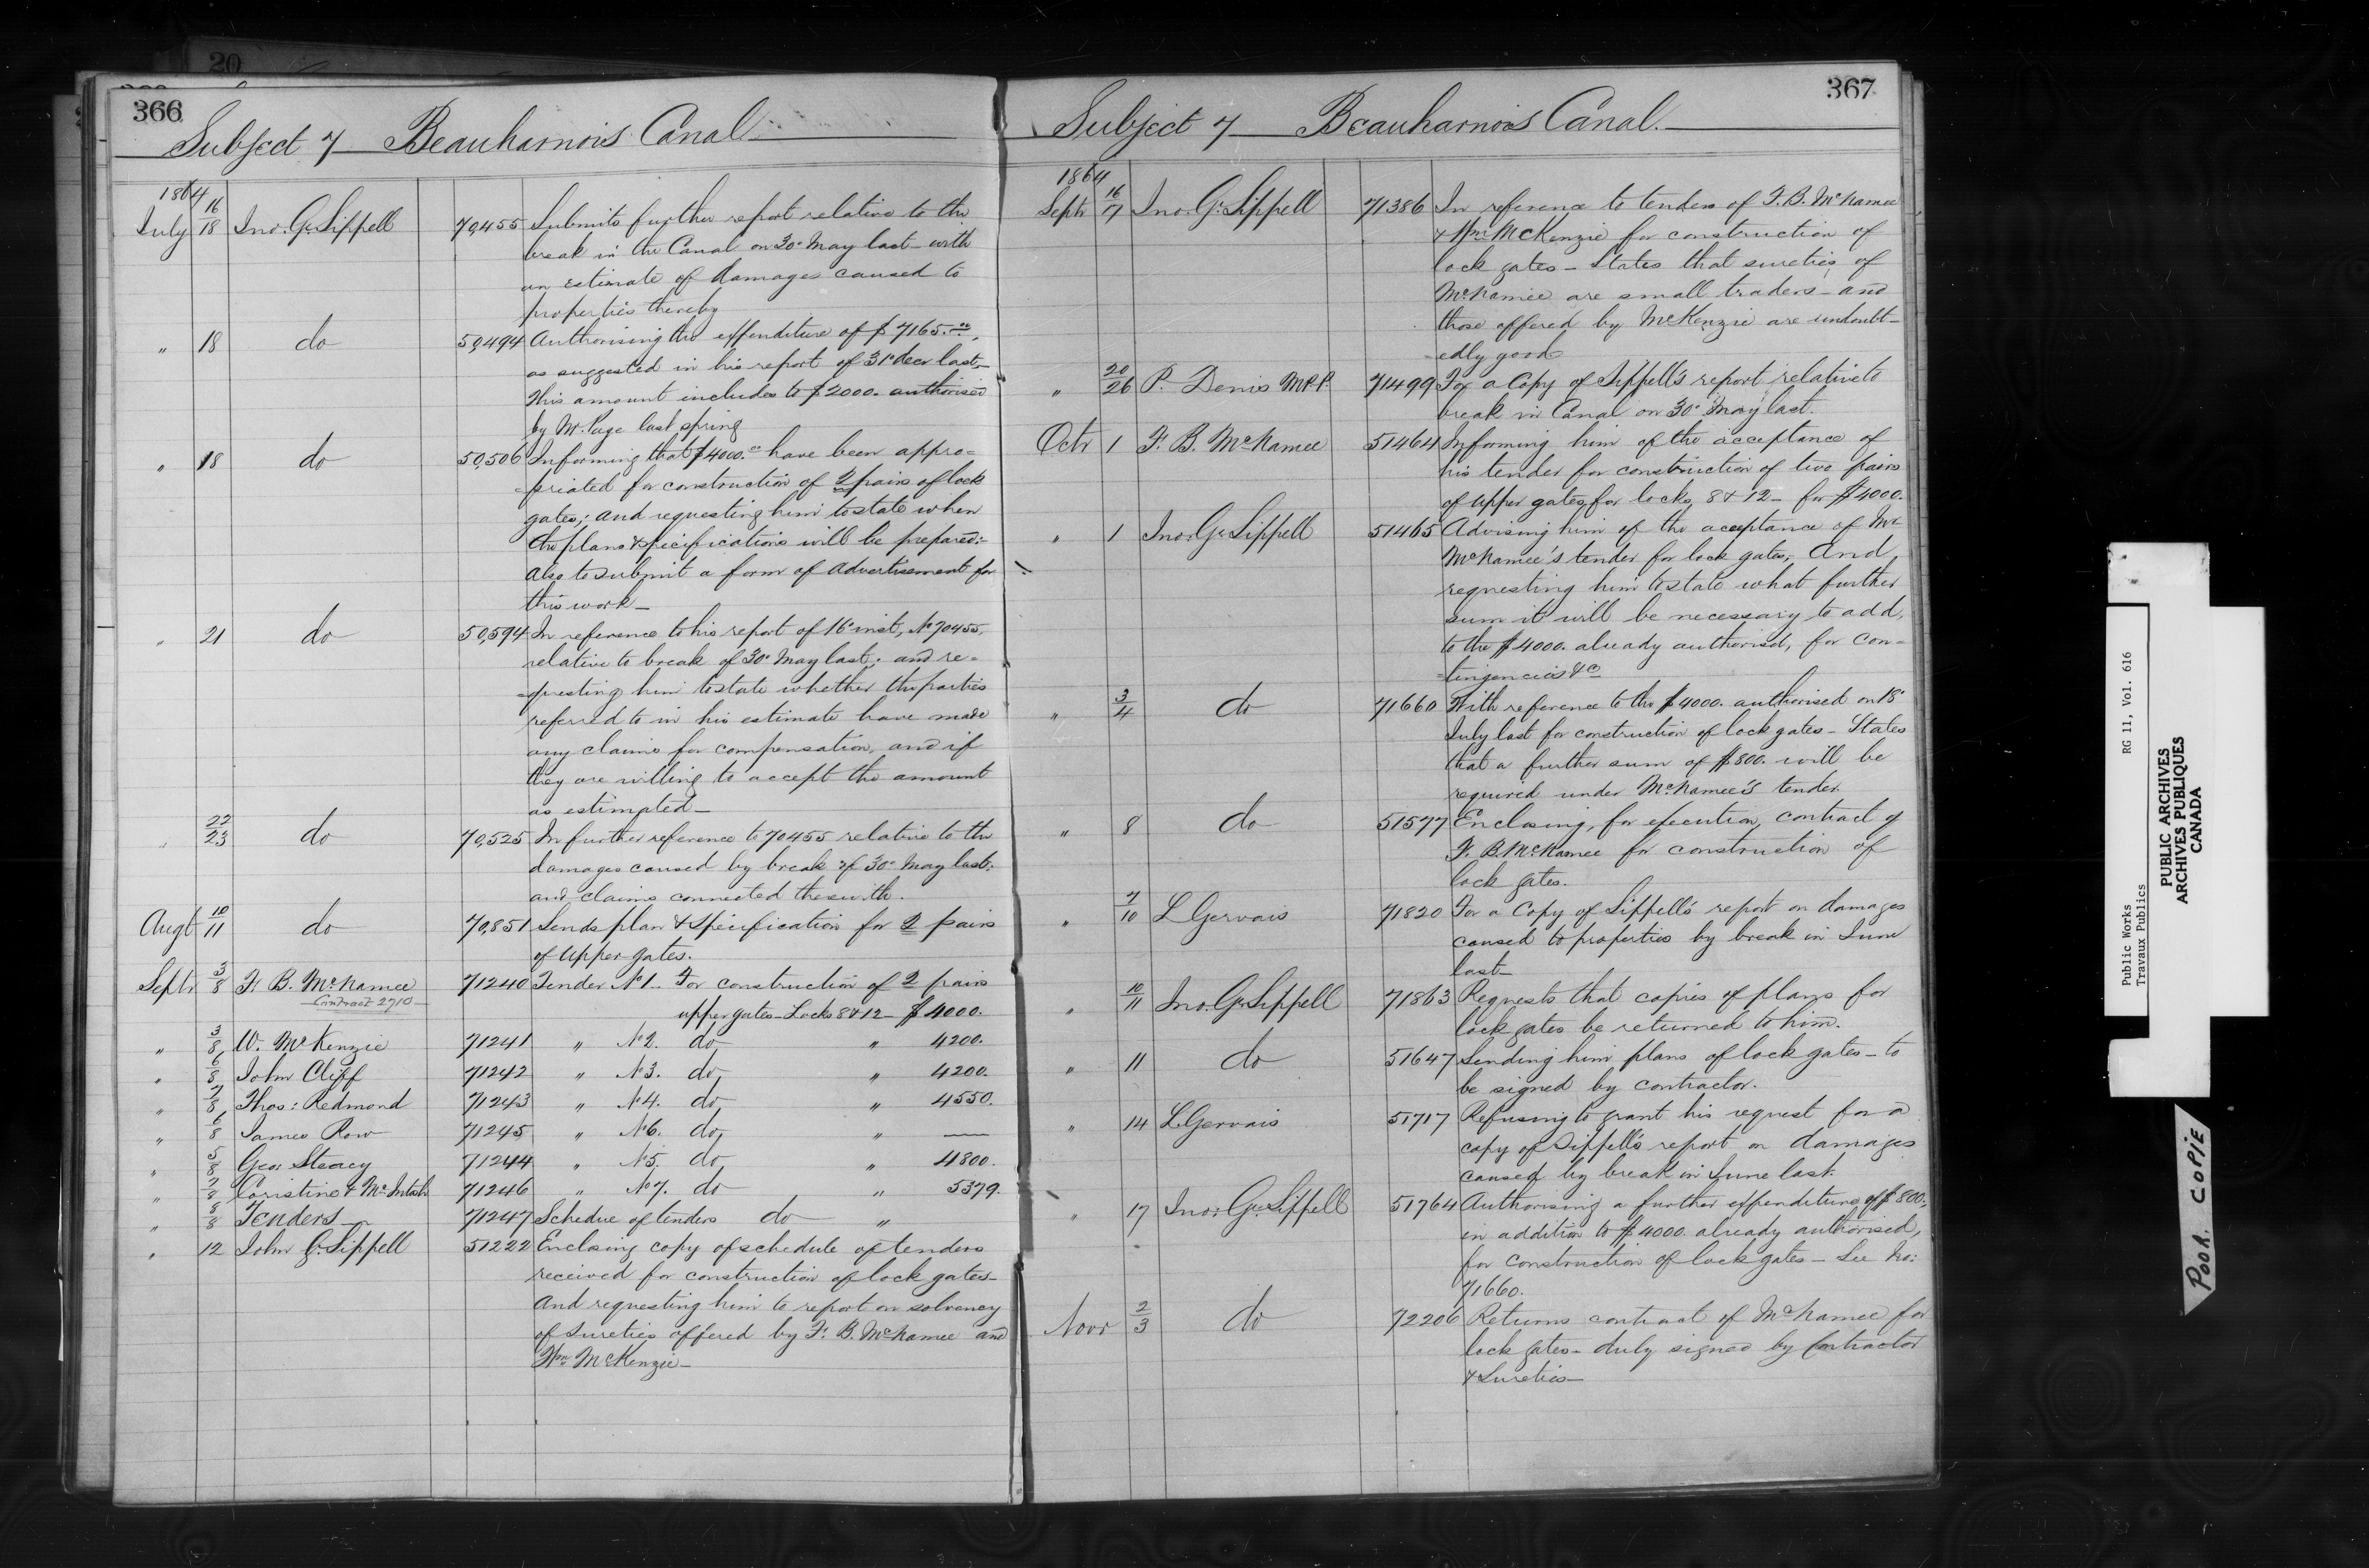 366
Subject 7 — Beauharnois Canal
1864
July 16/18 Jno. G. Sippell 70,455 Submits further report relative to the
break in the Canal on 30th May last — with
an estimate of damages caused to
properties thereby
" 18 do 50,494 Authorising the expenditure of $7165.00,
as suggested in his report of 31st decr last —
This amount includes to $2000. authorised
by Mr. Page last spring
" 18 do 50,506 Informing that $4000.00 have been appro=
=priated for construction of 2 pairs of lock
gates; and requesting him to state when
the plans & specifications will be prepared:—
Also to submit a form of Advertisement for
this work —
" 21 do 50,594 In reference to his report of 16th inst, No 70455,
relative to break of 30th May last; and re=
=questing him to state whether the parties
referred to in his estimate have made
any claims for compensation, and if
they are willing to accept the amount
as estimated —
" 22/23 do 70,525 In further reference to 70455 relative to the
damages caused by break of 30th May last;
and claims connected therewith.
Augt 10/11 do 70,851 Sends plan & specification for 2 pairs
of Upper gates.
Septr 3/8 F. B. McNamee 71240 Tender No 1. For construction of 2 pairs
Contract 2710 — upper gates — Locks 8 & 12 — $4000.
" 3/8 W. McKenzie 71241 " No 2. do " 4200.
" 6/8 John Cliff 71242 " No 3. do " 4200.
" 7/8 Thos: Redmond 71243 " No 4. do " 4550.
" 6/8 James Row 71245 " No 6. do " —
" 5/8 Geo. Steacy 71244 " No 5. do " 4800.
" 7/8 Coristine & McIntosh 71246 " No 7. do " 5379.
" 8/8 Tenders — 71247 Schedue of tenders do "
" 12 John G. Sippell 51222 Enclosing copy of schedule of tenders
received for construction of lock gates —
And requesting him to report on solvency
of Sureties offered by F. B. McNamee and
Wm McKenzie —
367
Subject 7 — Beauharnois Canal. —
1864
Septr 16/17 Jno. G. Sippell 71386 In reference to tenders of F. B. McNamee
& Wm McKenzie for construction of
lock gates — States that sureties of
McNamee are small traders — and
those offered by McKenzie are undoubt—
—edly good
" 20/26 P. Denis M.P.P. 71499 For a Copy of Sippell's report relative to
break in Canal on 30th May last.
Octr 1 F. B. McNamee 51464 Informing him of the acceptance of
his tender for construction of two pairs
of Upper gates for locks, 8 & 12 — for $4000.
" 1 Jno. G. Sippell 51465 Advising him of the acceptance of Mr
McNamee's tender for lock gates, — And
requesting him to state what further
sum it will be necessary to add,
to the $4000. already authorised, for con=
=tingencies &c
" 3/4 do 71660 With reference to the $4000. authorised on 18th
July last for construction of lock gates — States
that a further sum of $800. will be
required under McNamee's tender.
" 8 do 51577 Enclosing, for execution, contract of
F. B. McNamee for construction of
lock gates.
" 7/10 L Gervais 71820 For a Copy of Sippell's report on damages
caused to properties by break in June
last —
" 10/11 Jno. G. Sippell 71863 Requests that copies of plans for
lock gates be returned to him.
" 11 do 51647 Sending him plans of lock gates — to
be signed by contractor.
" 14 L Gervais 51717 Refusing to grant his request for a
copy of Sippell's report on damages
caused by break in June last.
" 17 Jno. G. Sippell 51764 Authorising a further expenditure of $800.
in addition to $4000. already authorised,
for construction of lock gates — See No:
71660.
Novr 2/3 do 72206 Returns contract of McNamee for
lock gates — duly signed by Contractor
& Sureties —
Public Works RG 11, Vol. 616
Travaux Publics
PUBLIC ARCHIVES
ARCHIVES PUBLIQUES
CANADA
POOR COPIE
20